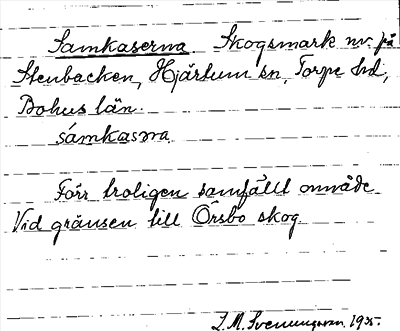 Samkaserna Skogsmark nv. på
Stenbacken, Hjärtum sn, Torpe hd,
Bohus län.
sámkasɔra
Förr troligen samfällt område
Vid gränsen till Örsbo skog
L.M. Svenungsson. 1935.